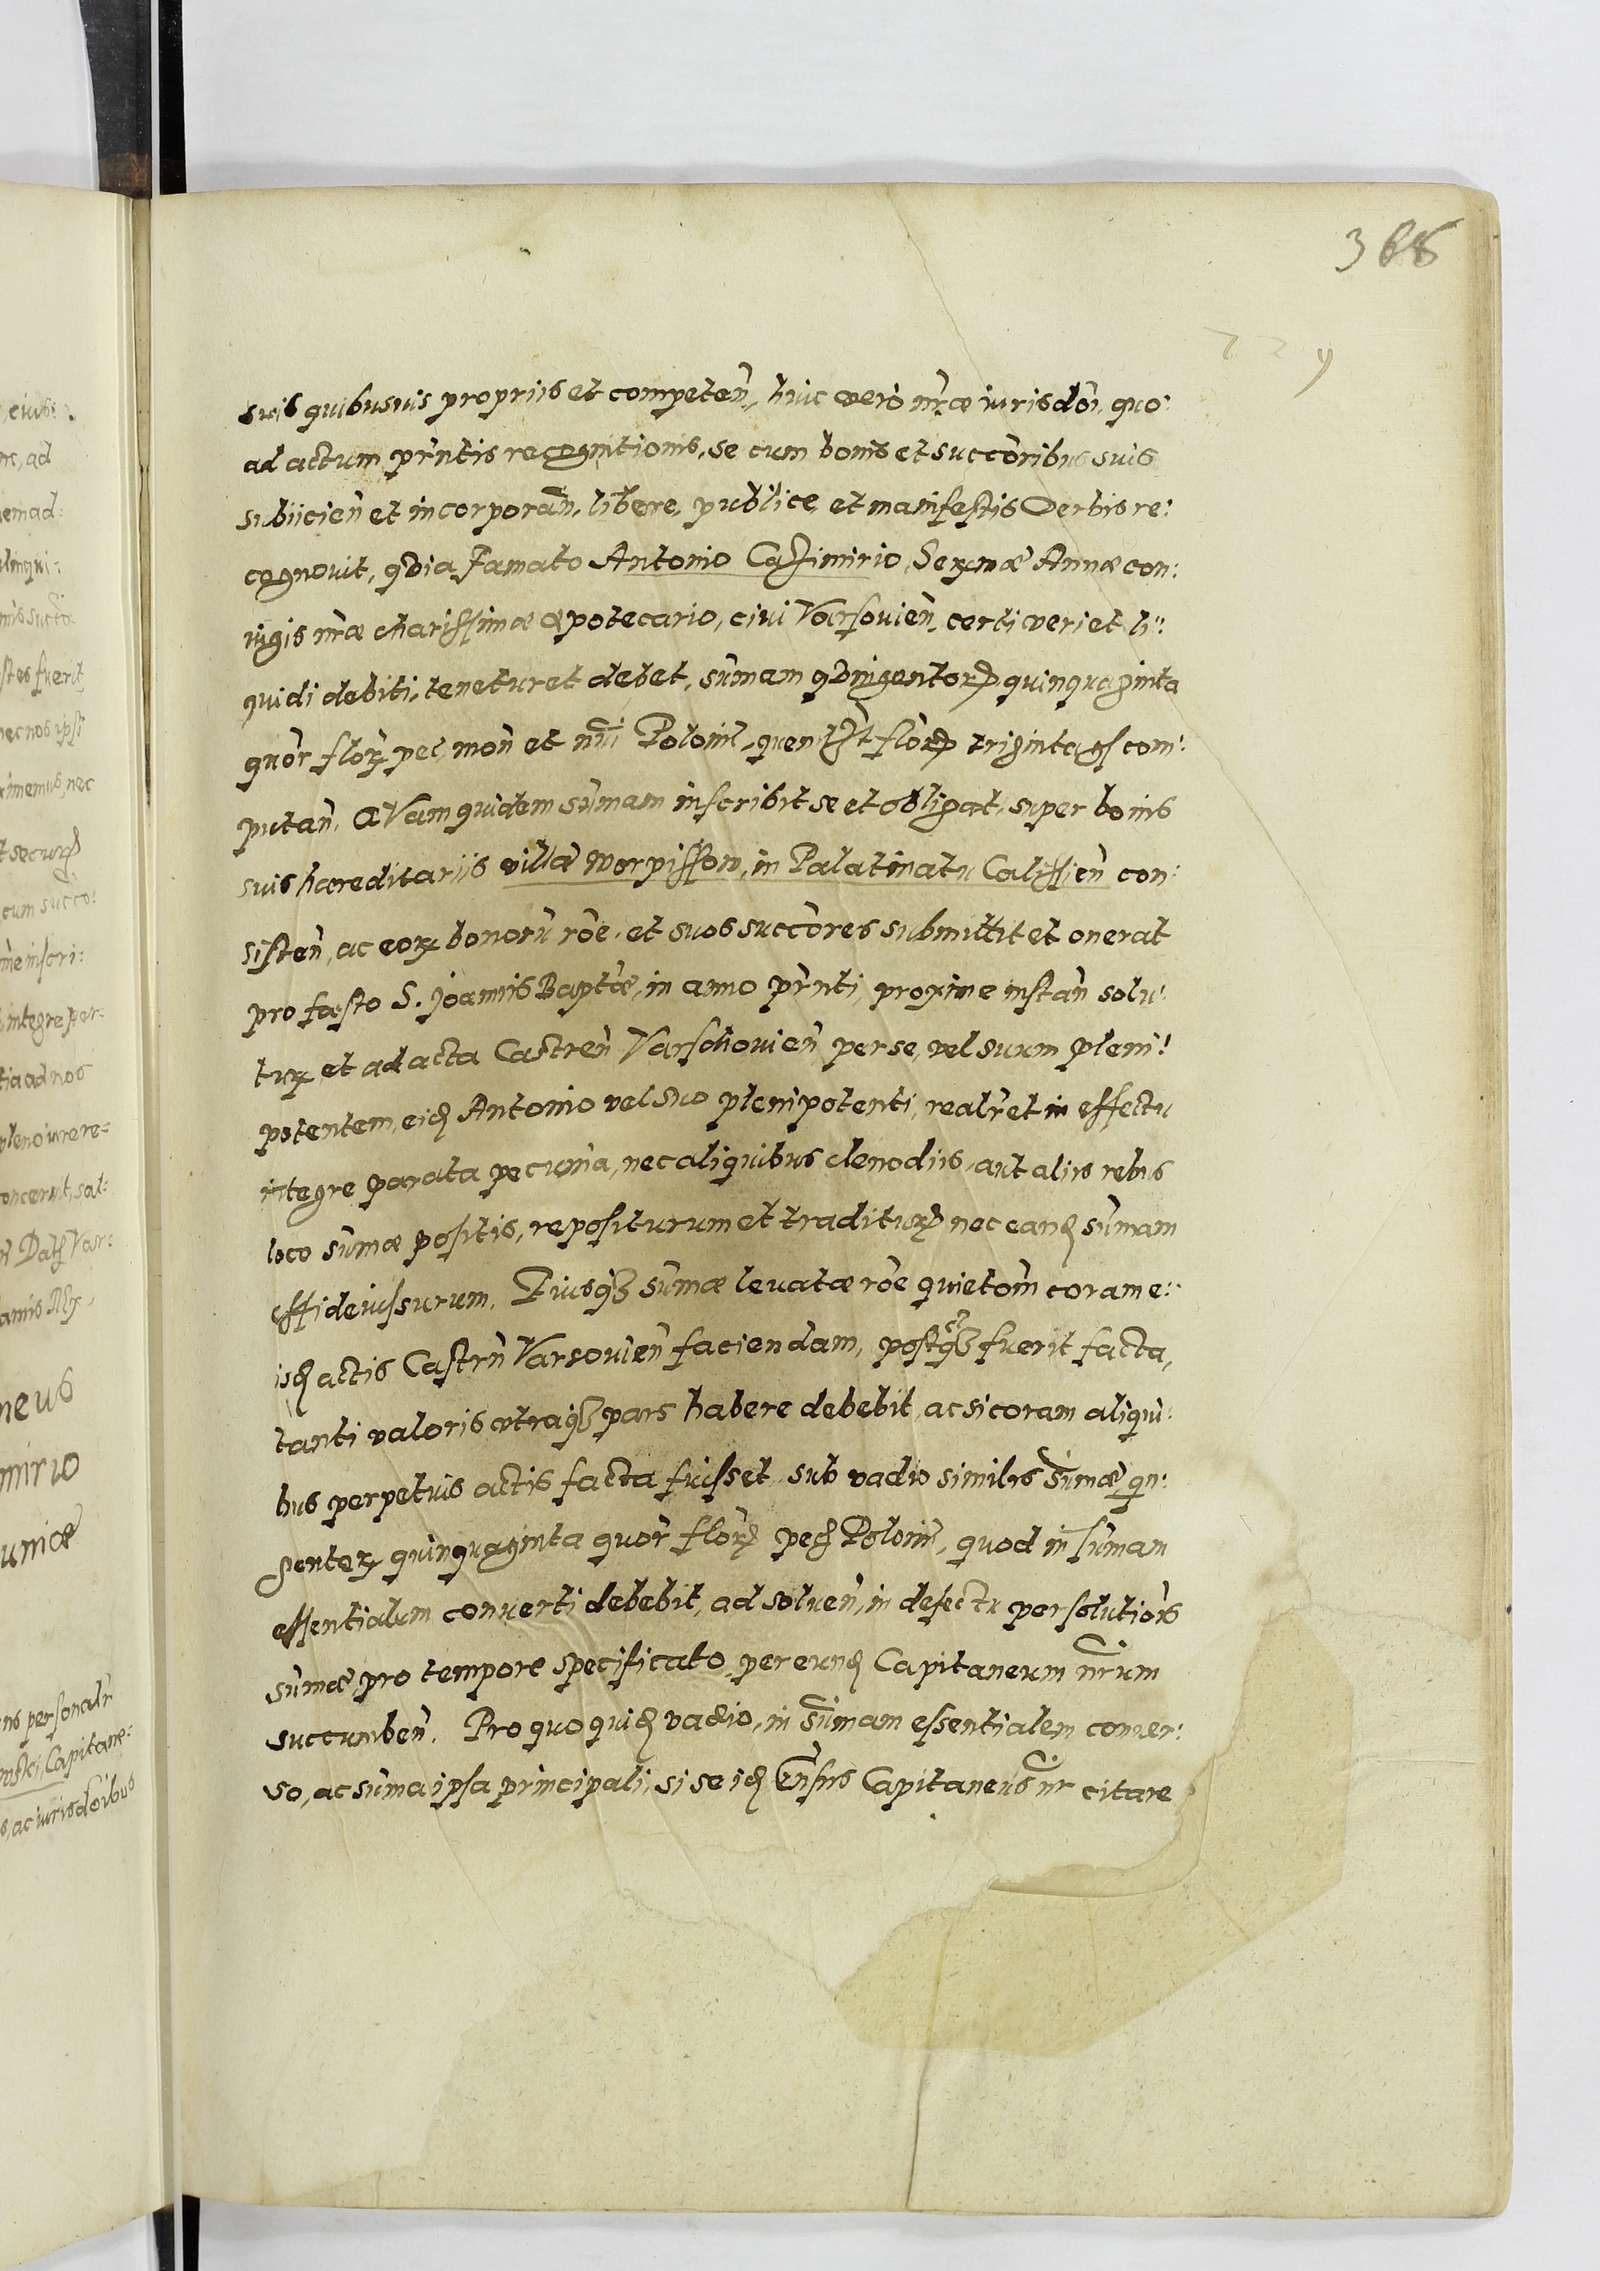 368
suis quibusuis propriis et competen̄, huic vero nr̄æ iurisdōi, quo:
ad actum pr̄ntis recognitionis, se cum bonis et succōribus suis
subijcien̄ et incorporan̄, libere, publice, et manifestis verbis re:
cognouit, quia Famato Antonio Casimirio, Serᵐæ Annæ con:
iugis nr̄æ charissimæ apotecario, ciui Varsouien̄, certi veri et li:
quidi debiti, tenetur et debet, sum̄am quingentorꝝ quinquaginta
quor̄ florꝝ pec, mon̄ et nri Polonil, quenlibet florꝝ triginta gs com:
putan̄. Quam quidem sum̄am inscribit se et obligat, super bonis
suis hæreditariis villæ worpissow, in Palatinatu Calissien̄ con:
sisten̄, ac eorꝝ bonorū rōe, et suos succōres submittit et onerat
pro fæsto S. Joannis Baptæ, in anno pr̄nti, proxime instan̄ solu:
turꝝ et ad acta Castren̄ Varschouien̄ per se, vel suum pleni:
potentem, eid Antonio vel suo plenipotenti, realr̄ et in effectu
integre parata pecunia, nec aliquibus clenodiis, aut aliis rebus
loco sum̄æ positis, repositurum et traditurꝝ nec eand sum̄am
effideiussurum. Eiusqꝫ sum̄æ leuatæ rōe quietom̄ coram e:
isd actis Castrn̄ Varsouien̄ faciendam, postqꝫ fuerit facta,
tanti valoris vtraqꝫ pars habere debebit, ac si coram aliqui:
bus perpetuis actis facta fuisset, sub vadio similis sum̄æ qn:
gentorꝝ quinquaginta quor̄ florꝝ pec Polonil, quod in sum̄am
essentialem conuerti debebit, ad soluen̄, in defectu persolutiōis
sum̄æ, pro tempore specificato, per eund Capitaneum nr̄um
succumben̄. Pro quo quid vadio, in sum̄am essentialem conuer:
so, ac sum̄a ipsa principali, si se id Capitaneus nr̄ citare